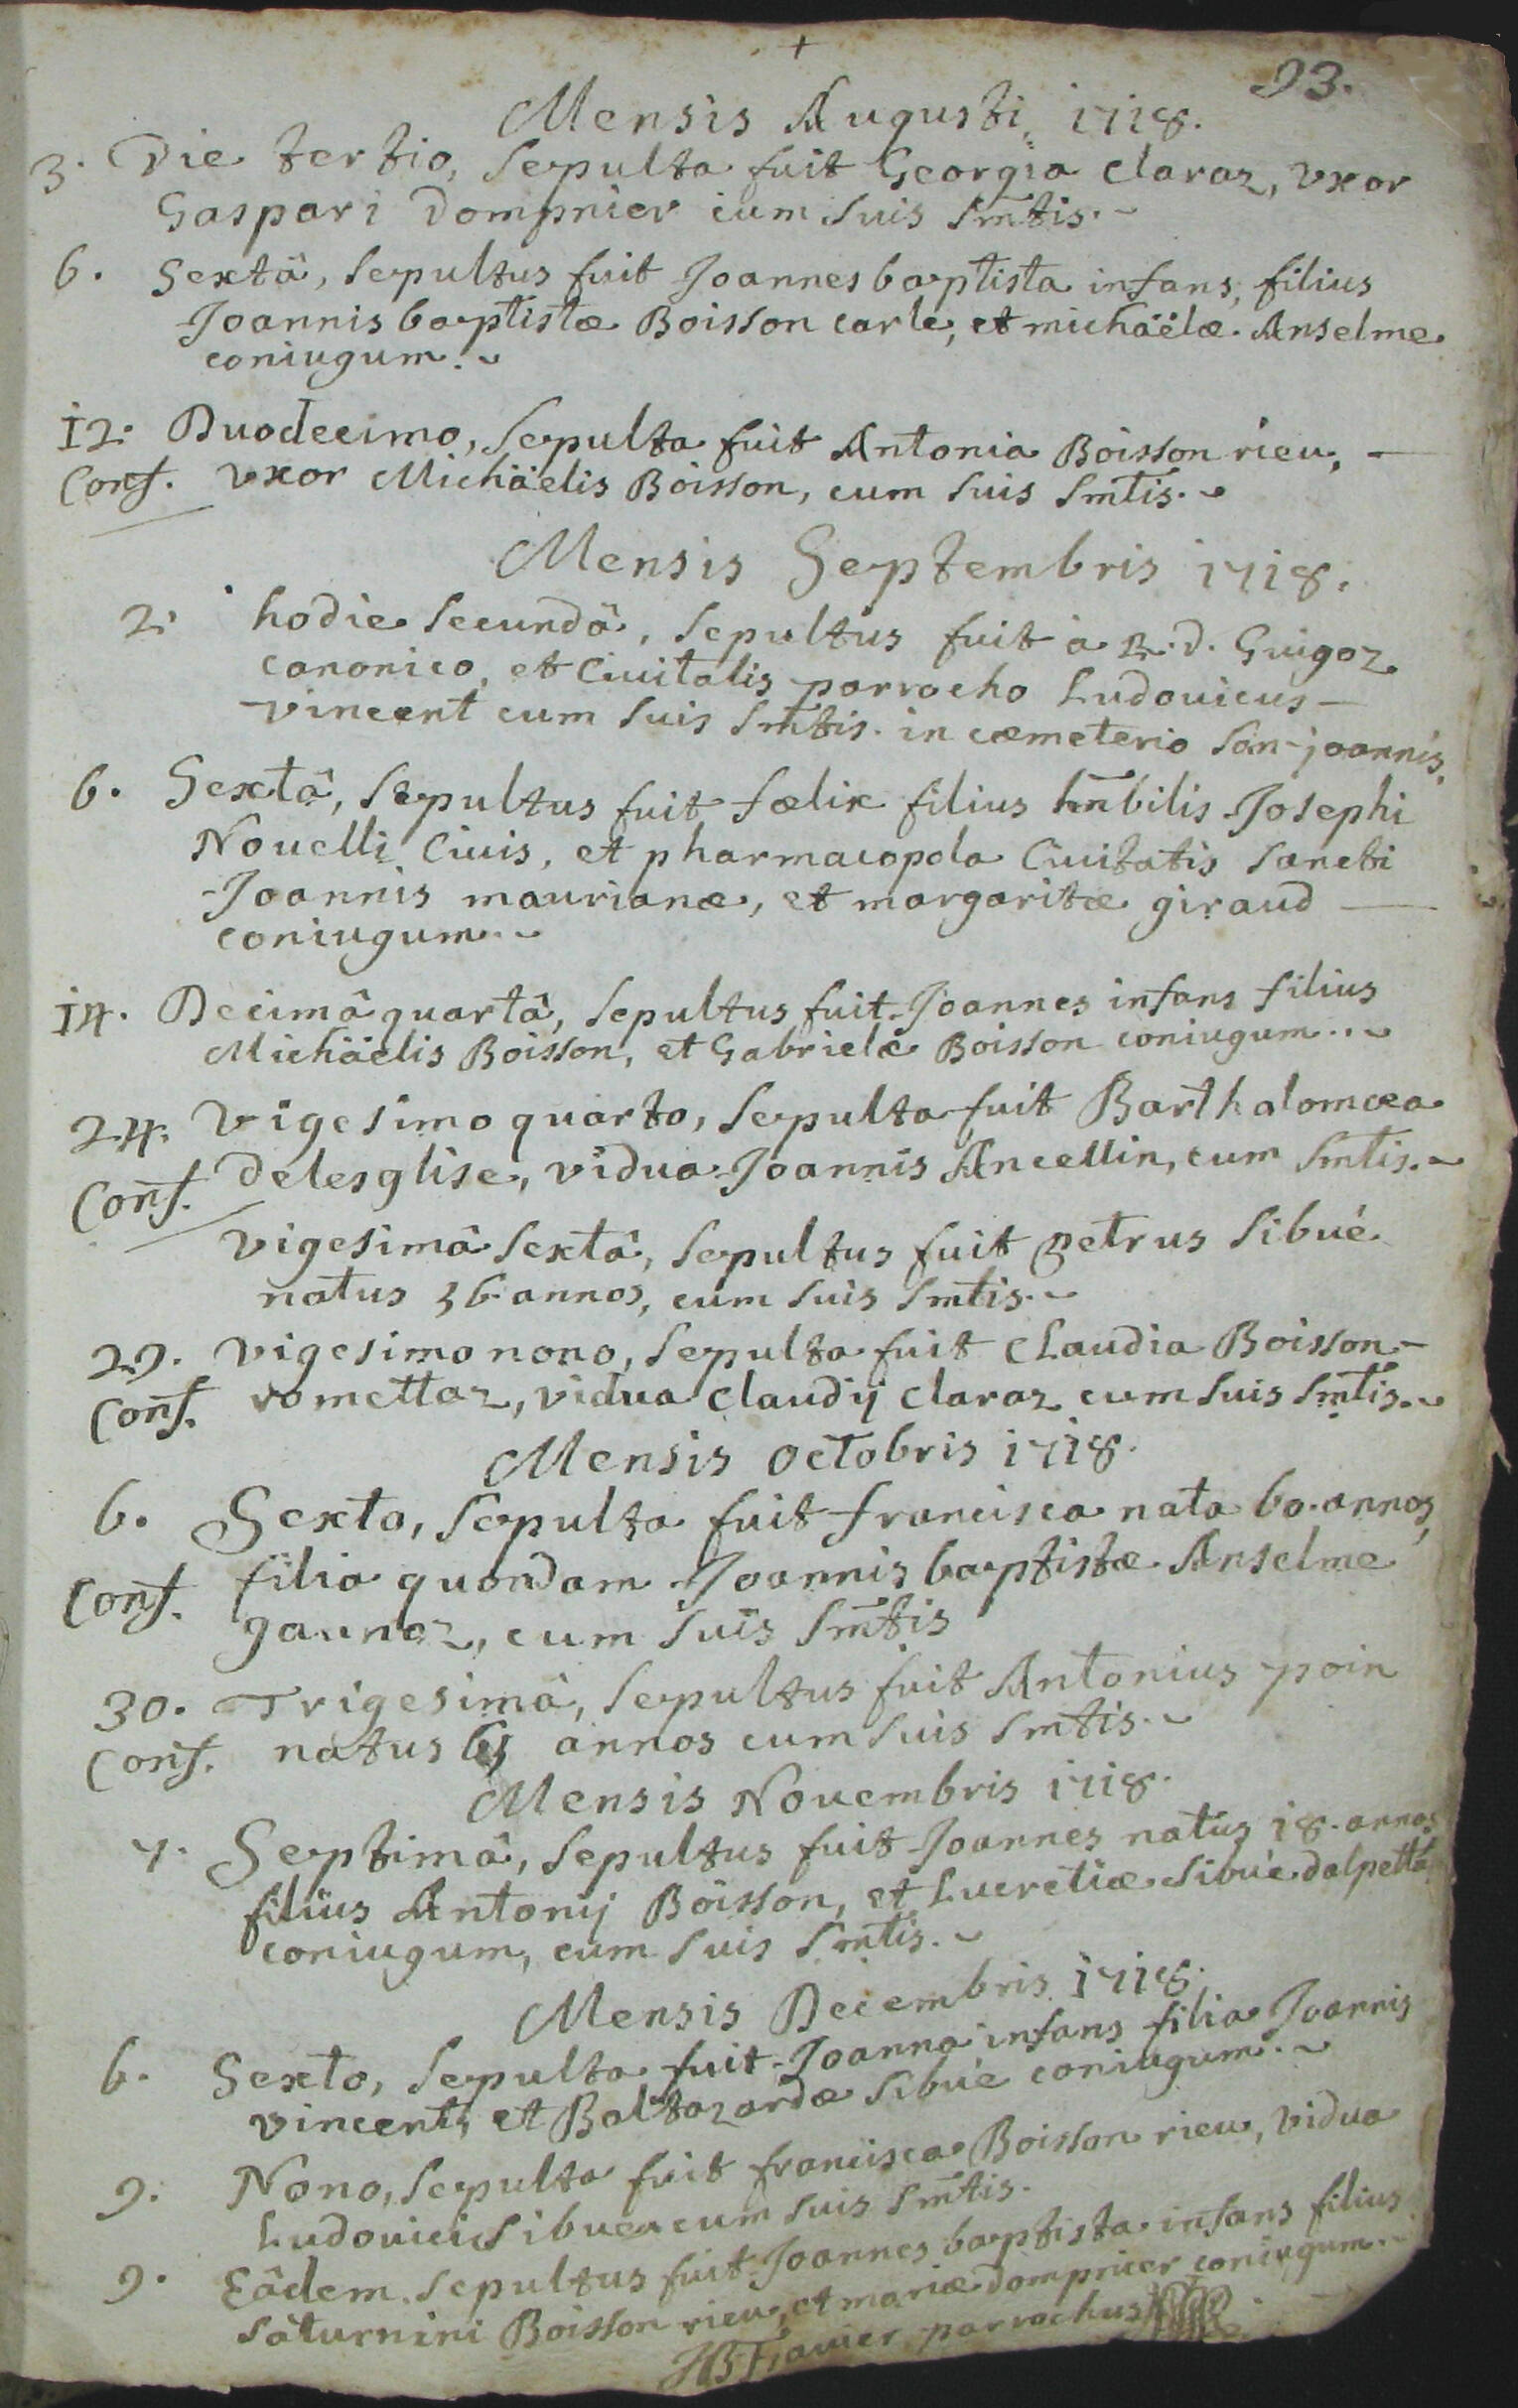 +
93.
Mensis Augusti, 1718.
3. Die tertio, sepulta fuit Georgia claraz, vxor
Gaspari dompnier cum suis Smtis.
6. Sextâ, sepultus fuit Joannes baptista infans, filius
Joannis baptistæ Boisson carle, et michäelæ Anselme
coniugum.
12. Duodecimo, sepulta fuit Antonia Boisson rieu, —
Conf. vxor Michäelis Boisson, cum suis Smtis.
Mensis Septembris 1718.
2. hodie secundâ, sepultus fuit à R.d. Guigoz
canonico, et Ciuitatis parrocho Ludouicus —
vincent cum suis Smtis. in cæmeterio San-joannis.
6. Sextâ, sepultus fuit fœlix filius hnbilis Josephi
Nouelli Ciuis, et pharmacopola Ciuitatis sancti
Joannis maurianæ, et margaritæ giraud —
coniugum
14. Decimâ quartâ, sepultus fuit Joannes infans filius
Michäelis Boisson, et Gabrielæ Boisson coniugum..
24. vigesimo quarto, sepulta fuit Barthalomæa
Conf. delesglise, vidua Joannis Ancellin, cum Smtis.
vigesimâ sextâ, sepultus fuit petrus sibué
natus 36 annos, cum suis Smtis.
29. vigesimo nono, sepulta fuit claudia Boisson-
Conf. romettaz, vidua claudij claraz cum suis Smtis.
Mensis octobris 1718.
6. Sexto, sepulta fuit francisca nata 60. annos,
Conf. filia quondam Joannis baptistæ Anselme
gaunaz, cum suis Smtis
30. Trigesimâ, sepultus fuit Antonius poin
Conf. natus annos cum suis Smtis.
Mensis Nouembris 1718.
7. Septimâ, sepultus fuit Joannes natus 18. annos
filius Antonij Boisson, et Lucretiæ sibué dalpetta
coniugum, cum suis Smtis.
Mensis Decembris 1718.
6. Sexto, sepulta fuit Joanna infans filia Joannis
vincent, et Baltazardæ sibué coniugum.
9. Nono, sepulta fuit francisca Boisson rieu, vidua
Ludouici sibue cum suis Smtis.
9. Eâdem sepultus fuit Joannes baptista infans filius
saturnini Boisson rieu, et mariæ dompnier coniugum..
parrochus